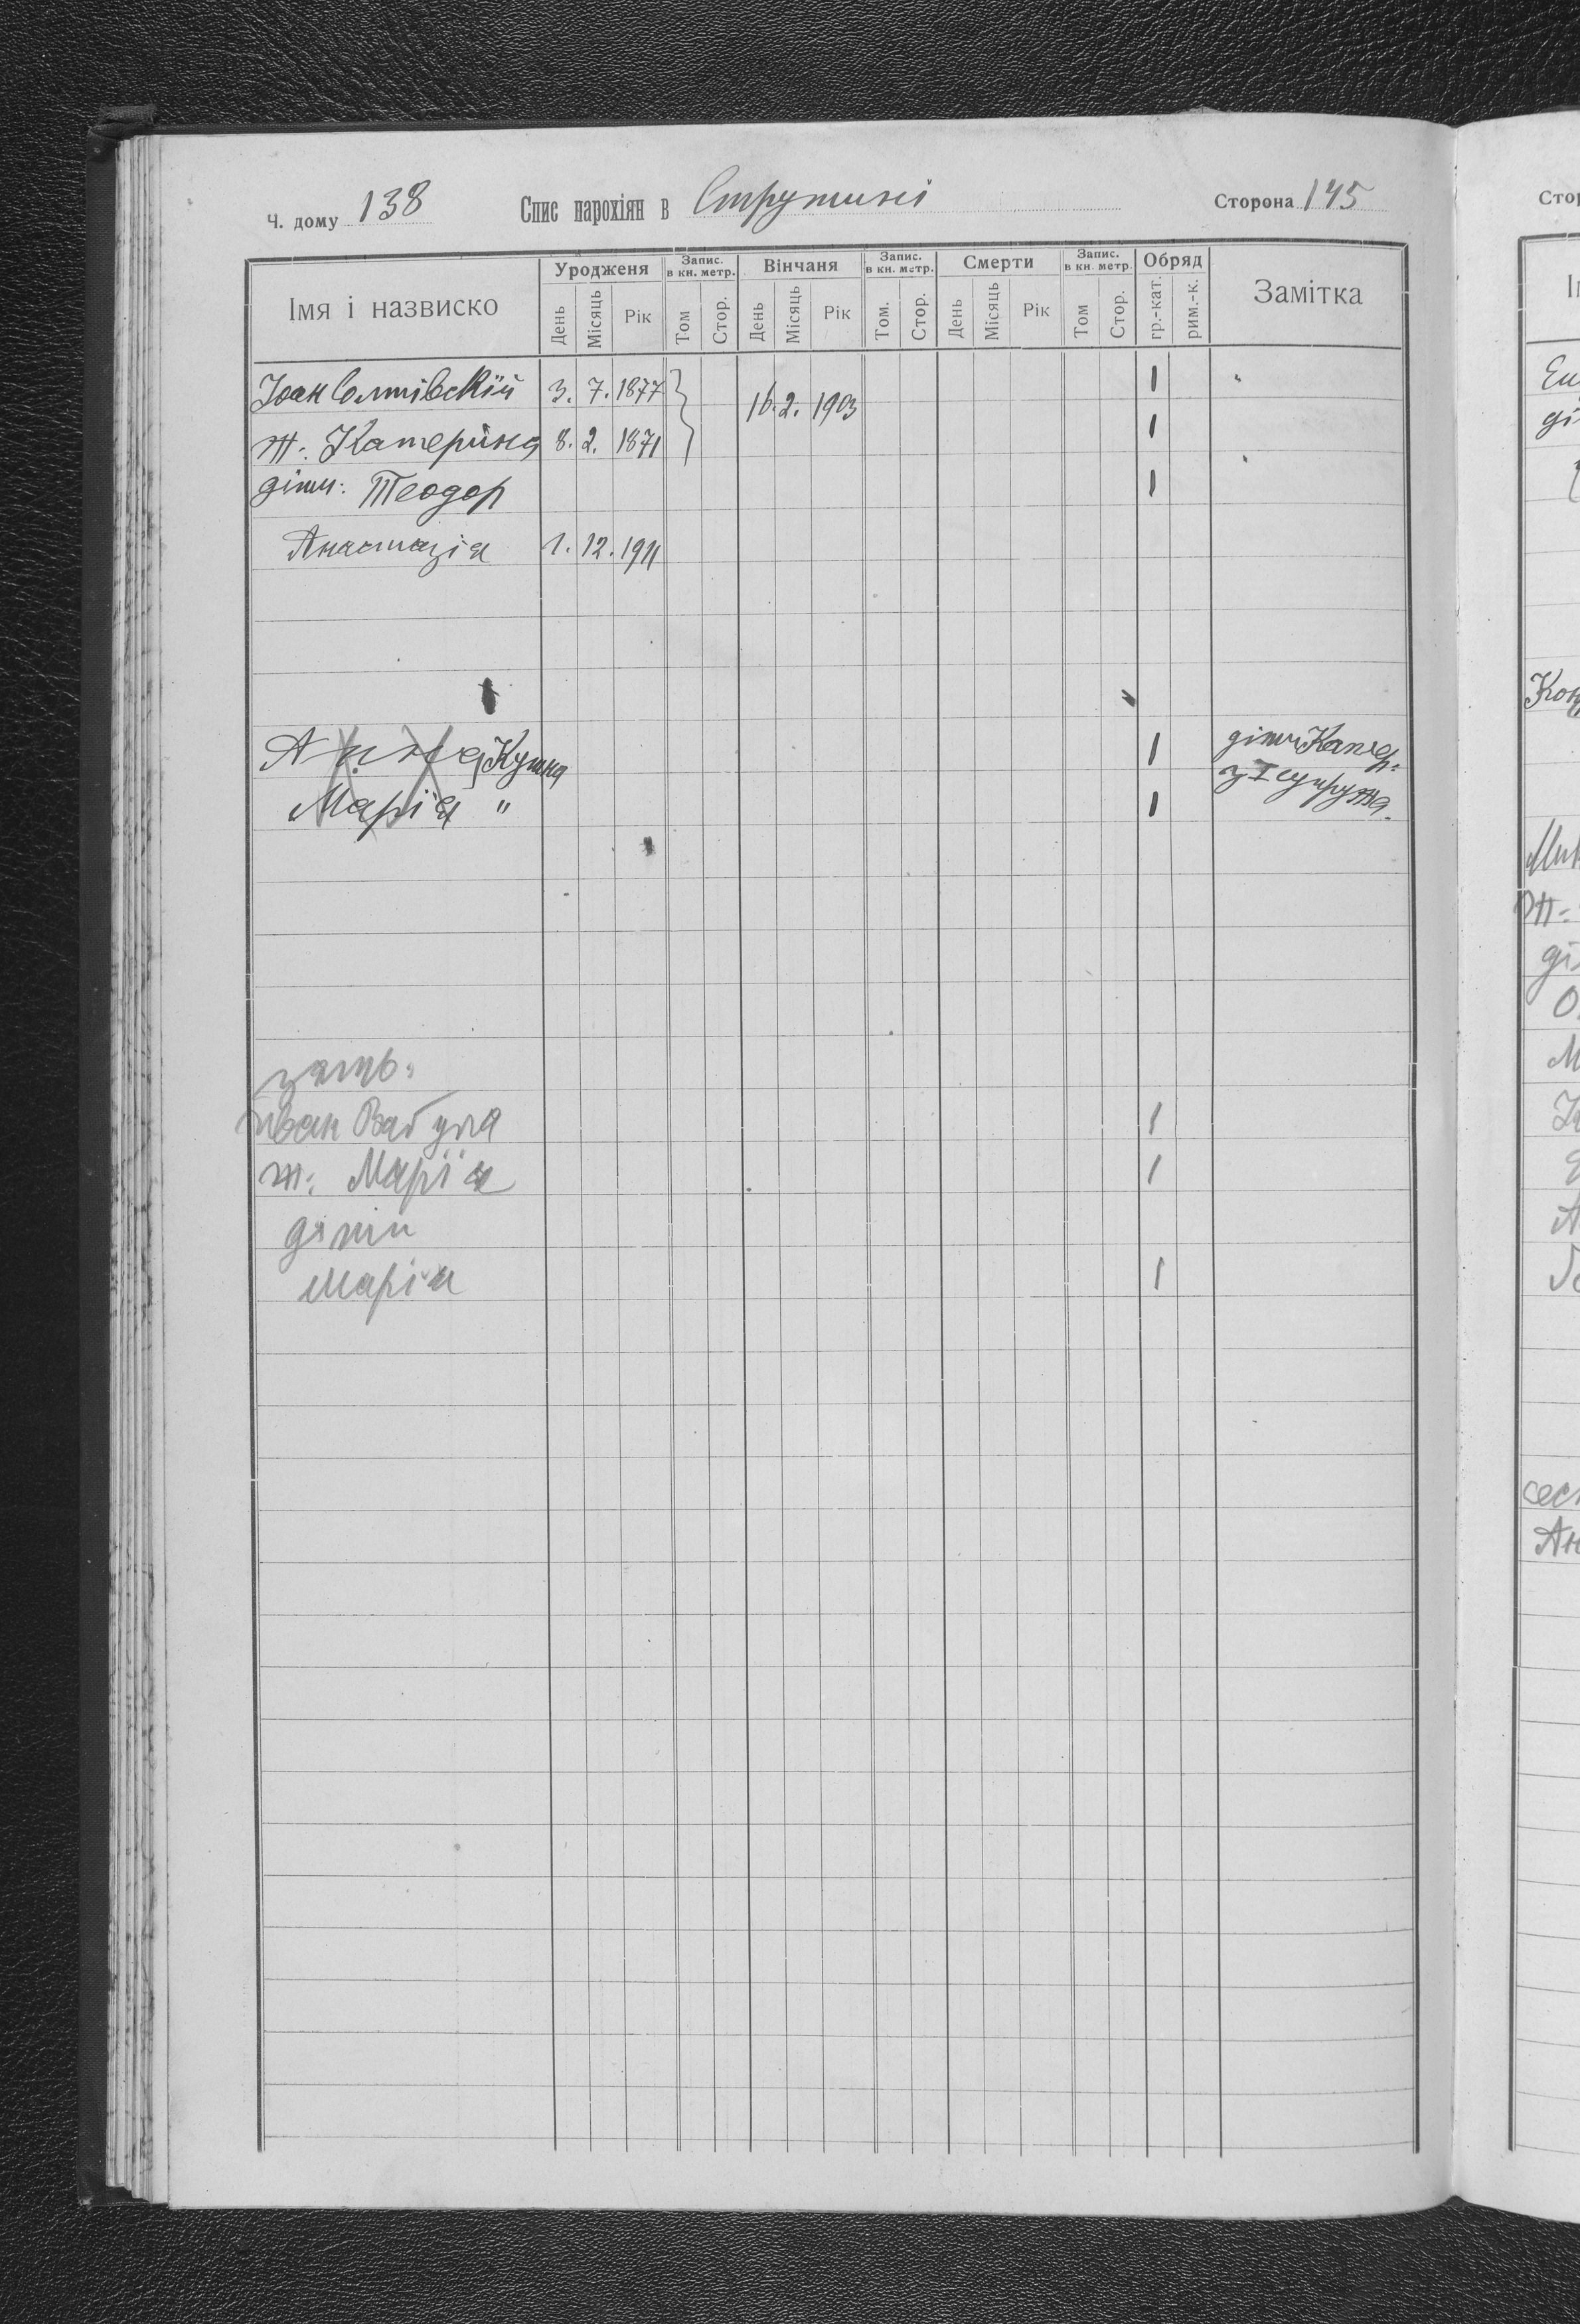 Ч. дому 138 Спис парохіян в Струтині Сторона 145
Імя і назвиско Уродженя Запис. в кн. метр. Вінчаня Запис. в кн. метр. Смерти Запис. в кн. метр. Обряд Замітка
День Місяць Рік Том Стор. День Місяць Рік Том. Стор. День Місяць Рік Том Стор. гр.-кат. рим.-к.
Іоан 3. 7. 1877 16. 2. 1903 1
ж: Катерина 8. 2. 1871 1
діти: Теодор 1
Анастазія 1. 12. 1911
Анна 1 діти Катер.
Марія " 1 з I супружа.
зять:
Іван 1
ж: Марія 1
діти
Марія 1